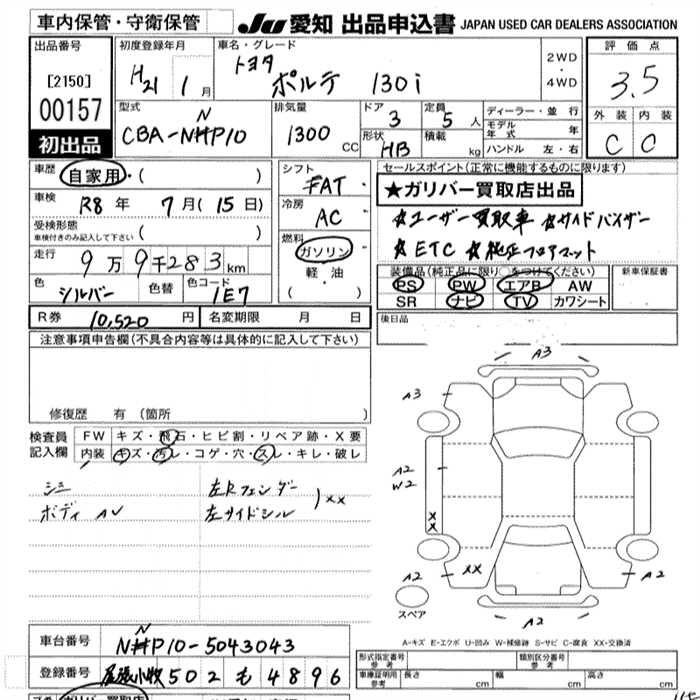 車内保管・守衛保管
JU 愛知 出品申込書 JAPAN USED CAR DEALERS ASSOCIATION
出品番号
[2150]
00157
初出品
初度登録年月
H21 年 1月
車名・グレード
トヨタ
ポルテ 130i
2WD
・
4WD
評価点
3.5
外装 内装
C C
型式
CBA-NNP10
排気量
1300 CC
ドア
3
定員
5人
形状
HB
積載
kg
ディーラー・並行
モデル年式 年
ハンドル 左・右
車歴
自家用・( )
車検
R8年 7月(15日)
受検形態
車検付きのみ記入して下さい ( )
走行
9万9千283km
色
シルバー
色替
色コード
1E7
シフト
FAT
冷房
AC
燃料
ガソリン
軽・油
( )
R券 10,520円
名変期限 月 日
セールスポイント(正常に機能するものに限ります)
★ガリバー買取店出品
☆ユーザー買取車 ☆サイドバイザー
☆ETC ☆純正フロアマット
装備品(純正品に限り○をつけてください)
PS PW エアB AW
SR ナビ TV カワシート
新車保証書
後日品
注意事項申告欄(不具合内容等は具体的に記入して下さい)
修復歴 有 (箇所 )
検査員記入欄
FW キズ・飛石・ヒビ割・リペア跡・X要
内装 キズ・汚レ・コゲ・穴・スレ・キレ・破レ
シミ
ボディ AU
左Rフェンダー
左サイドシル
) XX
A3
A3
A2
W2
XX
XX
A2
A2
A2
スペア
A-キズ E-エクボ U-凹み W-補修跡 S-サビ C-腐食 XX-交換済
車台番号
NNP10-5043043
登録番号
尾張小牧 502 も 4896
型式指定番号
参考
類別区分番号
参考
車庫証明用
参考
長さ cm
幅 cm
高さ cm
ガリバー買取店